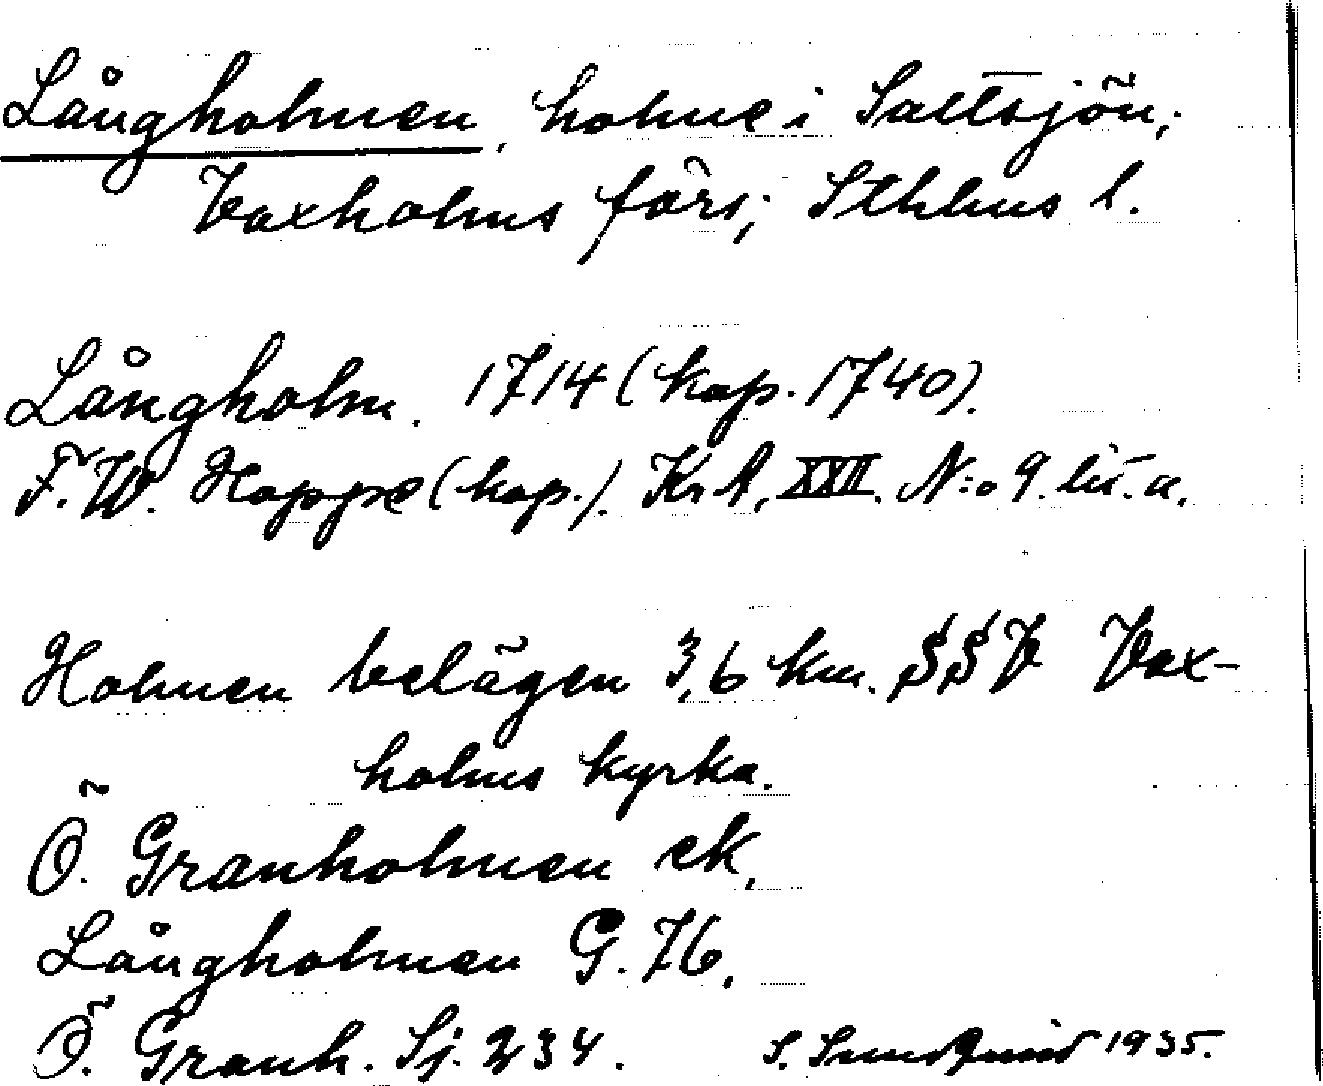 Långholmen, holme i Saltsjön,
Vaxholms förs, Sthlms l.
Långholm. 1714 (kop. 1740).
F. W. Hoppe (kop.). Kr A, XXII. N:o 9. lit. a.
Holmen belägen 3,6 km. SSV Vax-
holms kyrka.
Ö. Granholmen ek,
Långholmen G. 76,
Ö. Granh. Sj. 234. S. Sundqvist 1935.